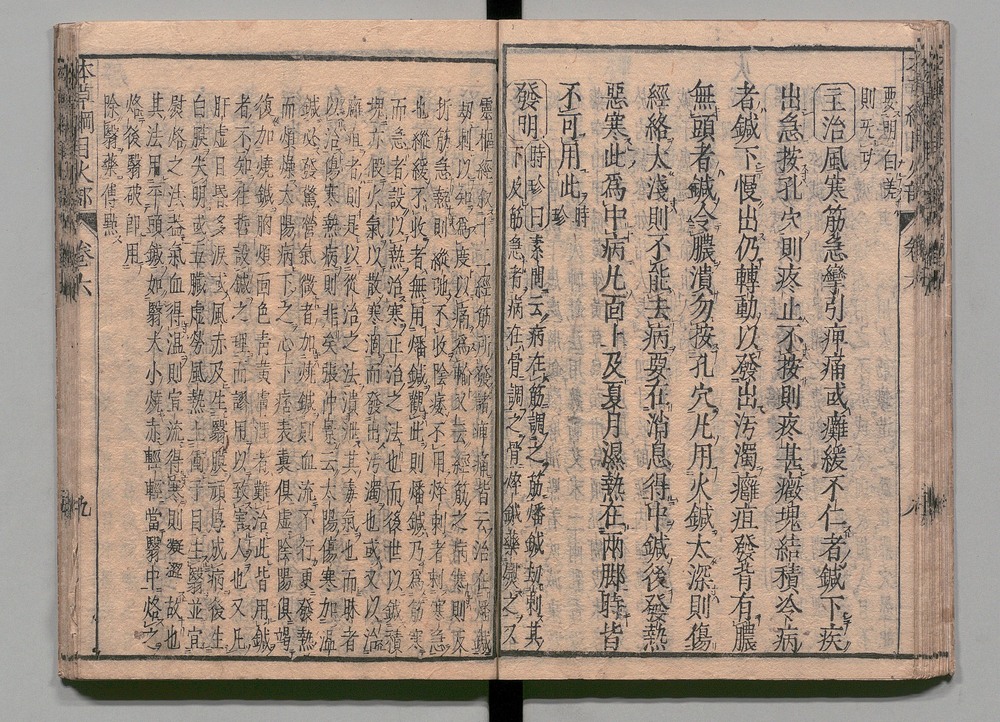 要明白差
則死可
主治風寒筋急攣引痺痛或癱緩不仁者鍼下疾
出急按孔穴則疼止不按則疼甚癥塊結積冷病
者鍼下慢出仍轉動以發出汚濁癰疽發背有膿
無頭者鍼令膿潰勿按孔穴凡用火鍼太深則傷
經絡太淺則不能去病要在消息得中鍼後發熱
惡寒此爲中病凡面上及夏月濕熱在兩脚時皆
不可用此時珍
發明時珍曰素問云病在筋調之筋燔鍼劫刺其
下及筋急者病在骨調之骨焠鍼藥熨之又
靈樞經敘十二經筋所發諸痺痛皆云治在燔鍼
劫刺以知爲度以痛爲輸又云經筋之病寒則反
折筋急熱則縱弛不收陰痿不用焠刺者刺寒急
也縱緩不收者無用燔鍼觀此則燔鍼乃爲筋寒
而急者設以熱治寒正治之法也而後世以鍼積
塊亦假火氣以散寒涸而發出汚濁也或又以治
癰疽者則是以從治之法潰泄其毒氣也而昧者
以治傷寒熱病則非矣張仲景云太陽傷寒加温
鍼必發驚營氣微者加燒鍼則血流不行更發熱
而煩躁太陽病下之心下痞表裏俱虛陰陽俱竭
復加燒鍼胸煩面色青黃膚瞤者難治此皆用鍼
者不知往哲設鍼之理而謬用以致害人也又凡
肝虛目昏多淚或風赤及生翳膜頑厚成病後生
白膜失明或五臟虛勞風熱上衝于目生翳並宜
熨烙之法蓋氣血得温則宣流得寒則凝澀故也
其法用平頭鍼如翳大小燒赤輕輕當翳中烙之
烙後翳破卽用
除翳藥傅㸃
本草綱目火部 卷六 九